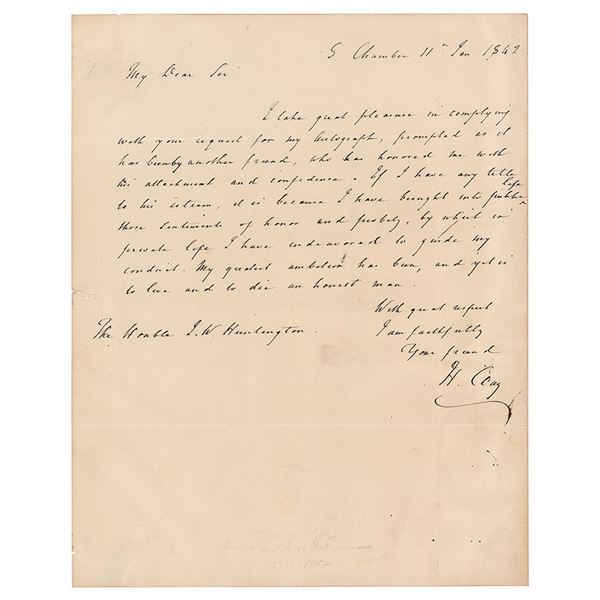 S Chamber 11th Jan. 1842
My Dear Sir
I take great pleasure in complying
with your request for my Autograph, prompted as it
has been by another friend, who has honored me with
his attachment and confidence. If I have any title
to his esteem, it is because I have brought into public life
those sentiments of honor and probity, by which in
private life I have endeavored to guide my
conduct. My greatest ambition has been, and yet is
to live and to die an honest man.
With great respect
I am faithfully
Your friend
H. Clay
The Honble J. W. Huntington.